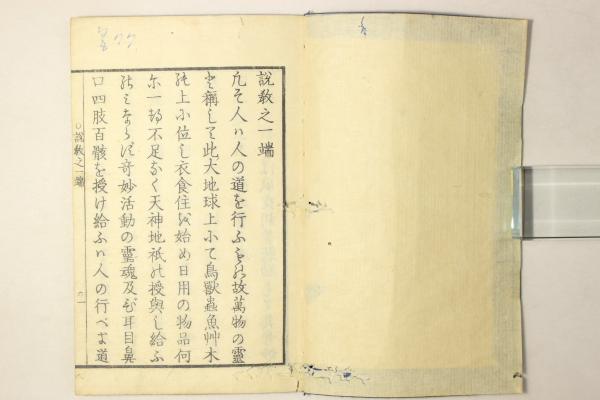 説教之一端
凡そ人ハ人の道を行ふもの故萬物の靈
と稱して此大地球上にて鳥獸蟲魚艸木
の上に位し衣食住を始め日用の物品何
ホ一
不足なく天神地祇の授與し給ふ
のみならず奇妙活動の靈魂及び耳目鼻
口四肢百骸を授け給ふハ人の行べき道
説教之一端